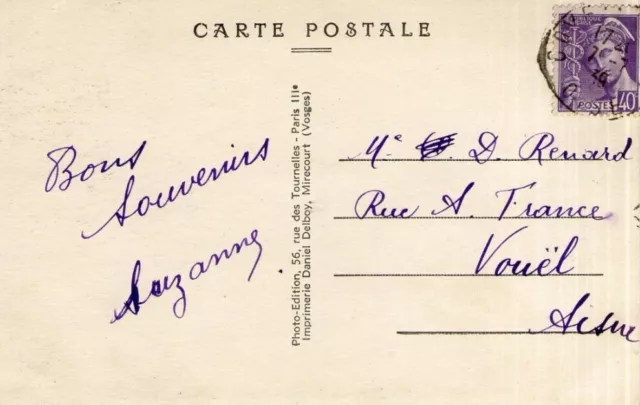 CARTE POSTALE
Bons
Souvenirs
Suzanne
Photo-Edition, 56, rue des Tournelles - Paris IIIe
Imprimerie Daniel Delboy, Mirecourt (Vosges)
POSTES 40
Me D. Renard
Rue A. France
Vouël
Aisne